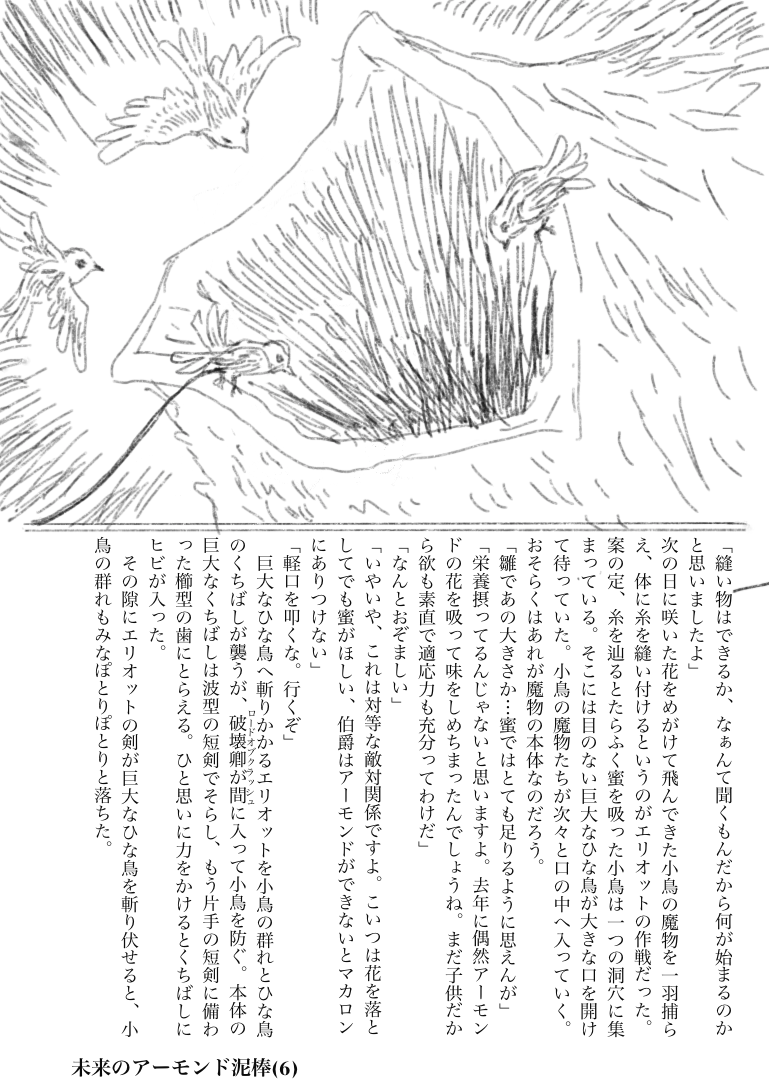 「縫い物はできるか、なぁんて聞くもんだから何が始まるのか
と思いましたよ」
次の日に咲いた花をめがけて飛んできた小鳥の魔物を一羽捕ら
え、体に糸を縫い付けるというのがエリオットの作戦だった。
案の定、糸を辿るとたらふく蜜を吸った小鳥は一つの洞穴に集
まっている。そこには目のない巨大なひな鳥が大きな口を開け
て待っていた。小鳥の魔物たちが次々と口の中へ入っていく。
おそらくはあれが魔物の本体なのだろう。
「雛であの大きさか…蜜ではとても足りるように思えんが」
「栄養摂ってるんじゃないと思いますよ。去年に偶然アーモン
ドの花を吸って味をしめちまったんでしょうね。まだ子供だか
ら欲も素直で適応力も充分ってわけだ」
「なんとおぞましい」
「いやいや、これは対等な敵対関係ですよ。こいつは花を落と
してでも蜜がほしい、伯爵はアーモンドができないとマカロン
にありつけない」
「軽口を叩くな。行くぞ」
　巨大なひな鳥へ斬りかかるエリオットを小鳥の群れとひな鳥
のくちばしが襲うが、破壊卿が間に入って小鳥を防ぐ。本体の
ロードオブクラッシュ
巨大なくちばしは波型の短剣でそらし、もう片手の短剣に備わ
った櫛型の歯にとらえる。ひと思いに力をかけるとくちばしに
ヒビが入った。
　その隙にエリオットの剣が巨大なひな鳥を斬り伏せると、小
鳥の群れもみなぽとりぽとりと落ちた。
未来のアーモンド泥棒(6)